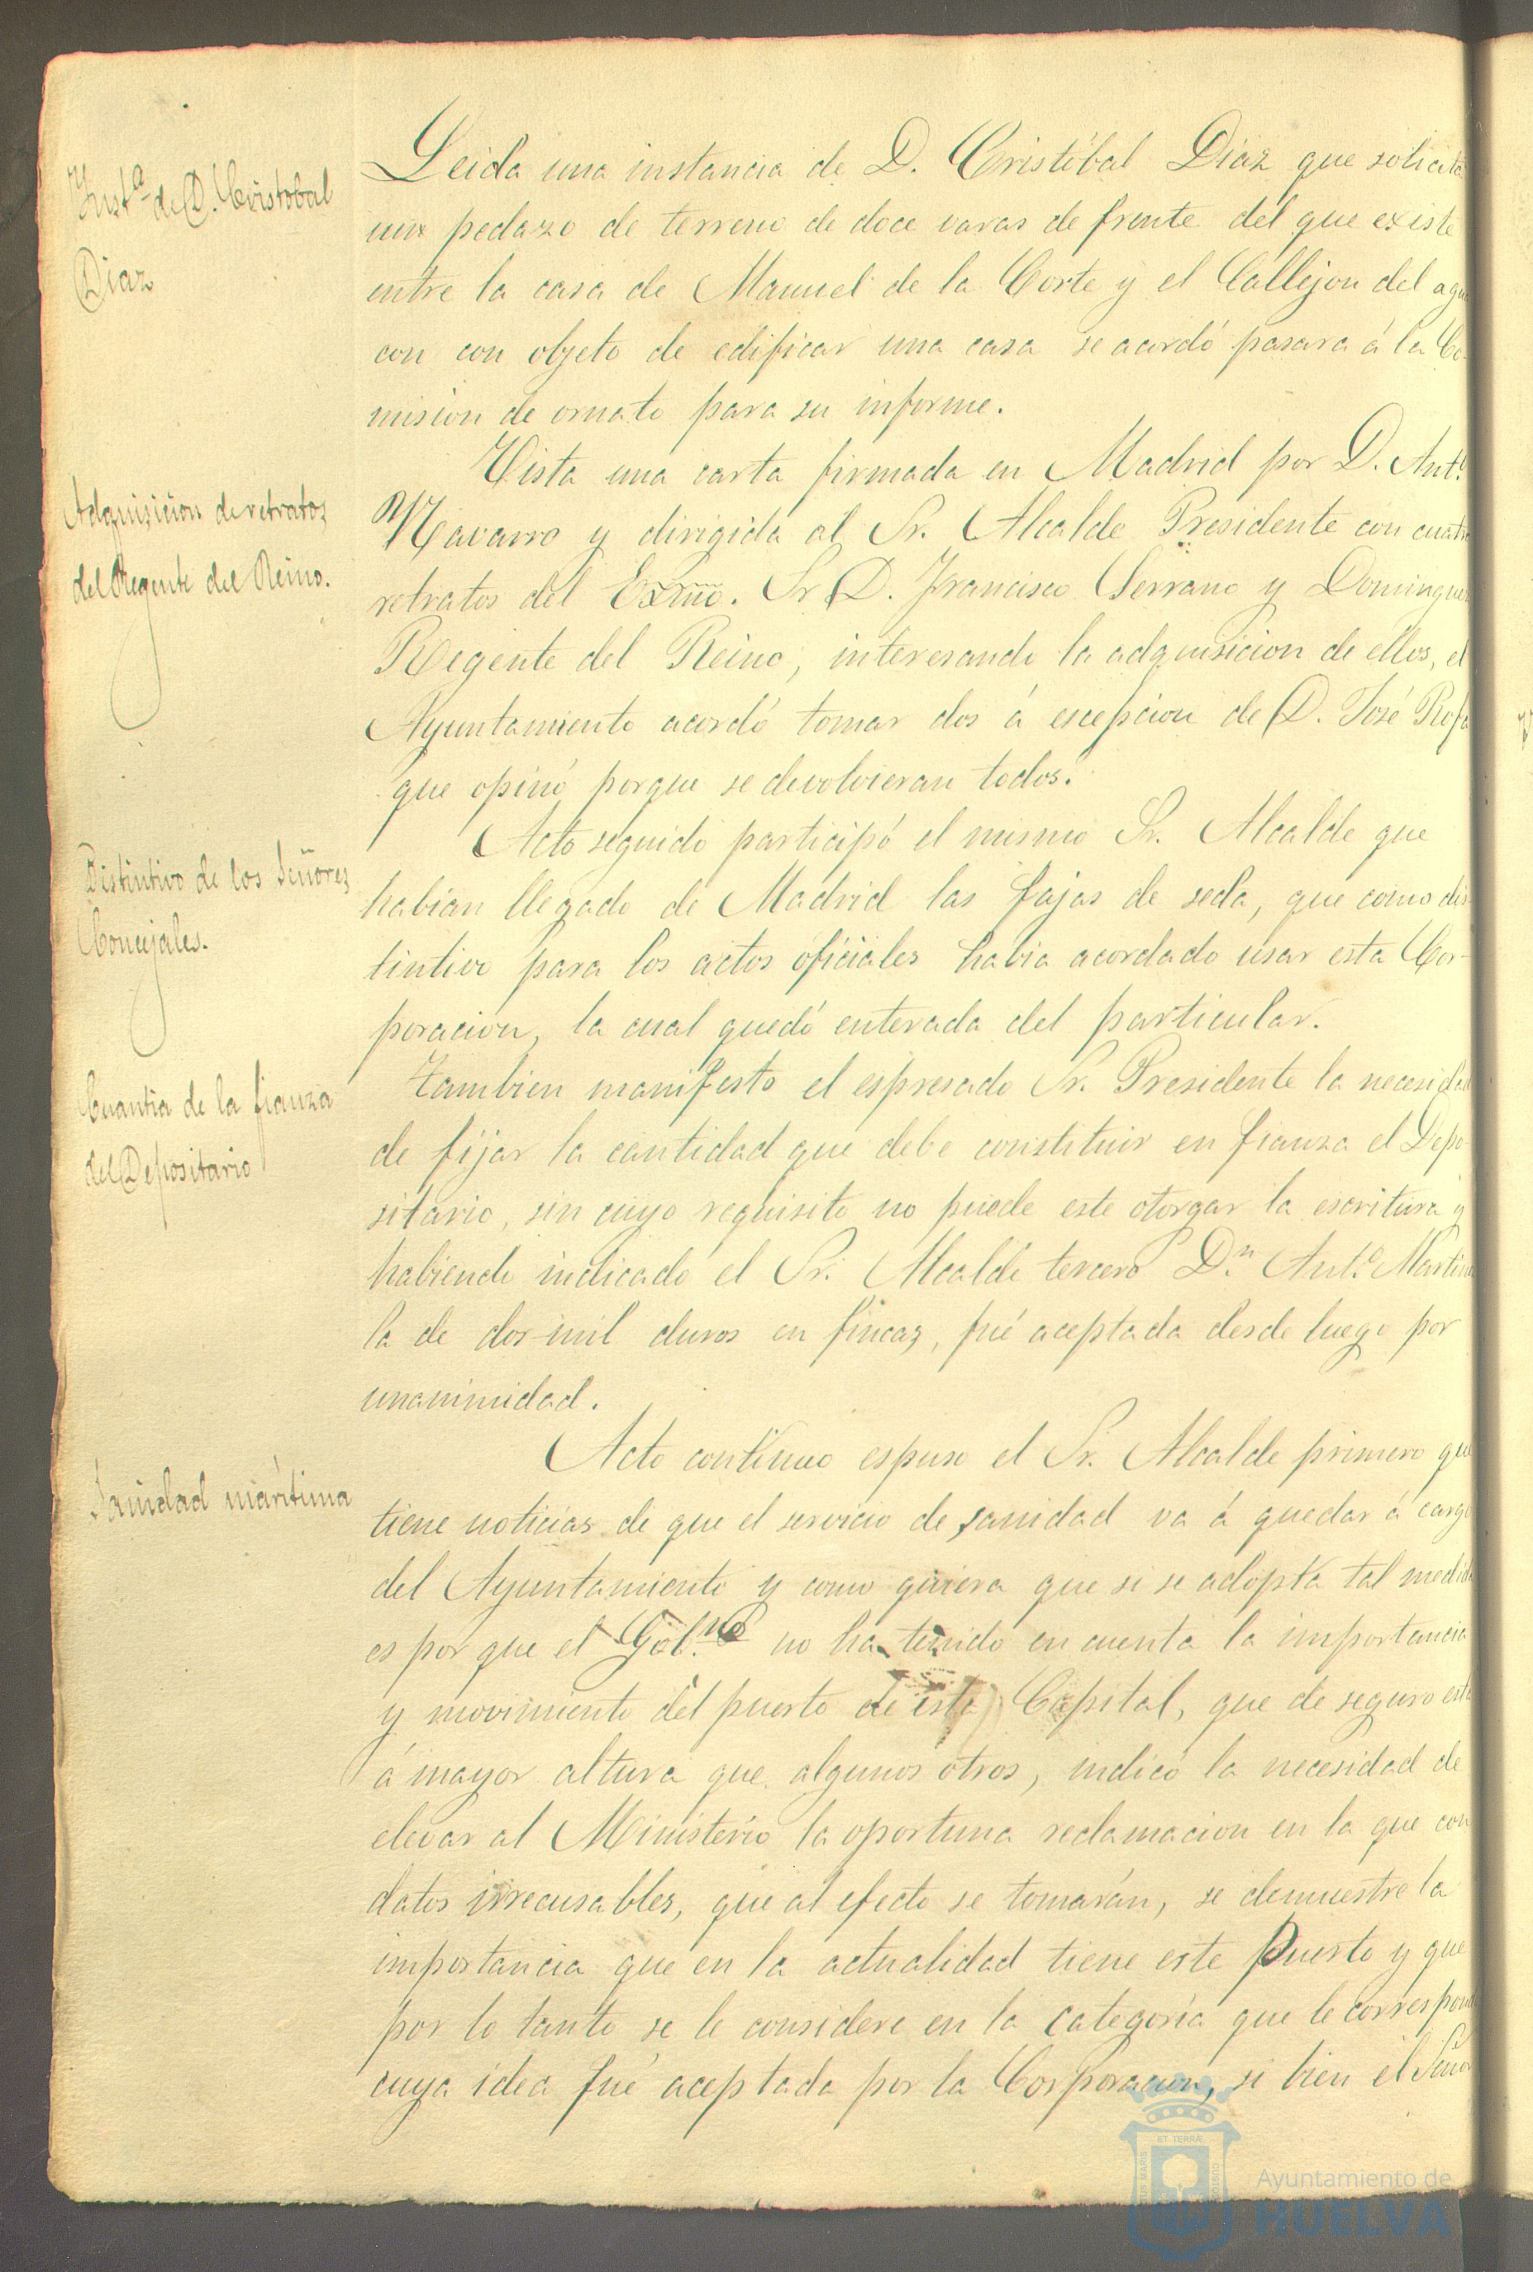 Inst.ª de D. Cristobal
Diaz
Leida una instancia de D. Cristóbal Diaz que solicita
un pedazo de terreno de doce varas de frente del que existe
entre la casa de Manuel de la Corte y el Callejon del agua
con con objeto de edificar una casa se acordó pasara á la Co-
mision de ornato para su informe.
Adquisicion de retratos
del Regente del Reino.
Vista una carta firmada en Madrid por D. Ant.º
Navarro y dirigida al Sr. Alcalde Presidente con cuatro
retratos del Exmo. Sr D. Francisco Serrano y Dominguez
Regente del Reino, interesando la adquisicion de ellos, el
Ayuntamiento acordó tomar dos á escepcion de D. José Rofa
que opinó porque se devolvieran todos.
Distintivo de los Señores
Concejales.
Acto seguido participó el mismo Sr. Alcalde que
habian llegado de Madrid las fajas de seda, que como dis-
tintivo para los actos oficiales habia acordado usar esta Cor-
poracion, la cual quedó enterada del particular.
Cuantia de la fianza
del Depositario
Tambien manifesto el espresado Sr. Presidente la necesidad
de fijar la cantidad que debe constituir en fianza el Depo-
sitario, sin cuyo requisito no puede este otorgar la escritura y
habiendo indicado el Sr. Alcalde tercero D.n Ant.º Martinez
la de dos mil duros en fincas, fué aceptada desde luego por
unanimidad.
Sanidad marítima
Acto contínuo espuso el Sr. Alcalde primero que
tiene noticias de que el servicio de sanidad va á quedar á cargo
del Ayuntamiento y como quiera que si se adopta tal medida
es por que el Gob.no no ha tenido en cuenta la importancia
y movimiento del puerto de esta Capital, que de seguro está
á mayor altura que algunos otros, indicó la necesidad de
elevar al Ministerio la oportuna reclamacion en la que con
datos irrecusables, que al efecto se tomarán, se demuestre la
importancia que en la actualidad tiene este Puerto y que
por lo tanto se le considere en la categoría que le corresponde
cuya idea fué aceptada por la Corporacion, si bien el Señor
Ayuntamiento de
HUELVA